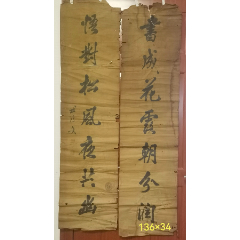 書成花露朝分潤
悟對松風夜共幽
136×34